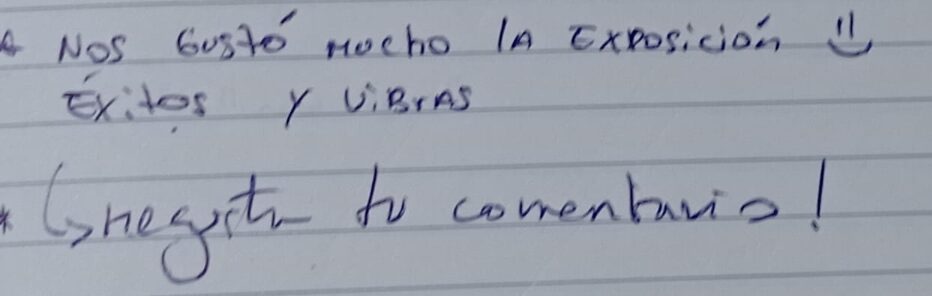 * Nos Gustó mucho la Exposición
Éxitos y ViBrAS
* tu comentario!